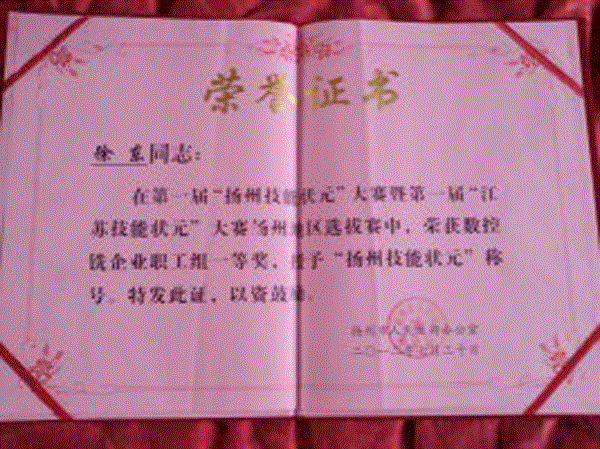 荣誉证书
徐 东同志：
在第一届“扬州技能状元”大赛暨第一届“江
苏技能状元”大赛扬州地区选拔赛中，荣获数控
铣企业职工组一等奖，授予“扬州技能状元”称
号。特发此证，以资鼓励。
扬州市人民政府办公室
二〇一二年七月二十日